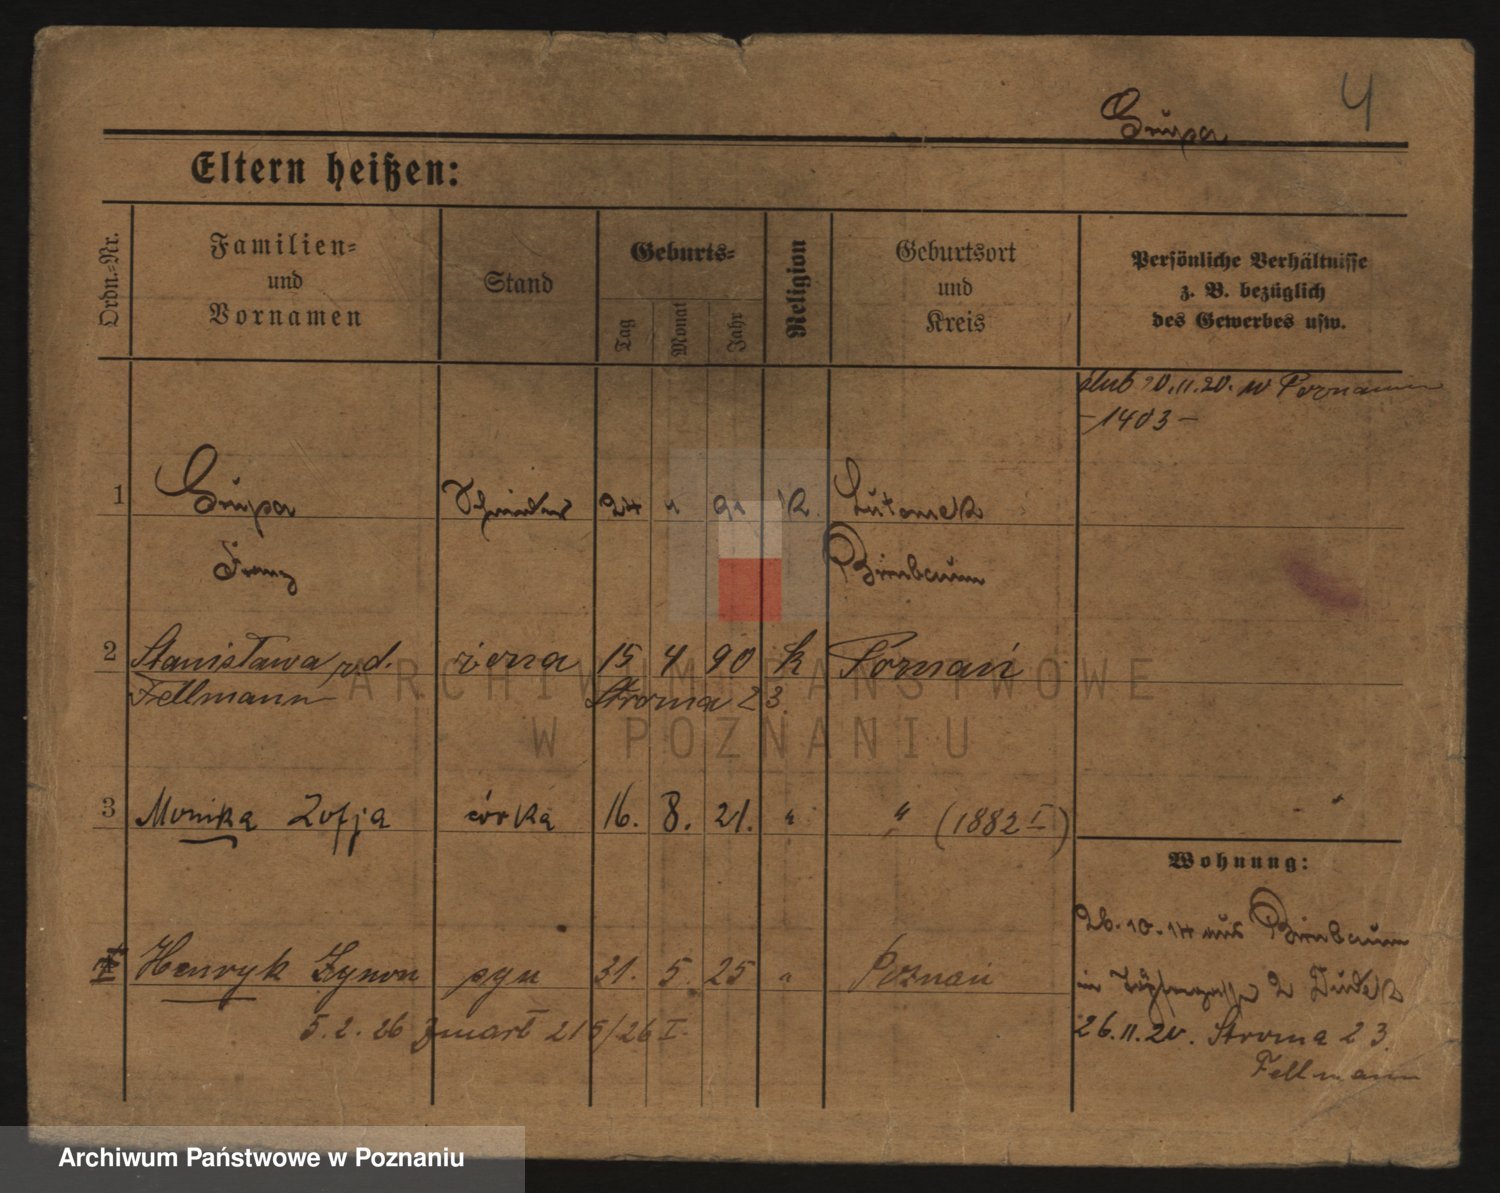 4
Grupa
Eltern heißen:
Ordn.=Nr.
Familien=
und
Vornamen
Stand
Geburts=
Tag
Monat
Jahr
Religion
Geburtsort
und
Kreis
Persönliche Verhältnisse
z. B. bezüglich
des Gewerbes usw.
ślub 20.11.20. w Poznaniu
-1403-
1 Grupa Schneider 24 91 K Lutomek
Franz Birnbaum
2 Stanisława rd. żona 15 4 90 k Poznań
Fellmann Stroma 23.
3 Monika Zofja córka 16. 8. 21. " " (1882 I)
Wohnung:
26.10.14 aus Birnbaum
Henryk Zynon syn 31. 5. 25 " Poznań
in 2
5.2.26 zmarł 215/26 I.
26.11.20. Stroma 23.
Fellmann
ARCHIWUM PAŃSTWOWE
W POZNANIU
Archiwum Państwowe w Poznaniu